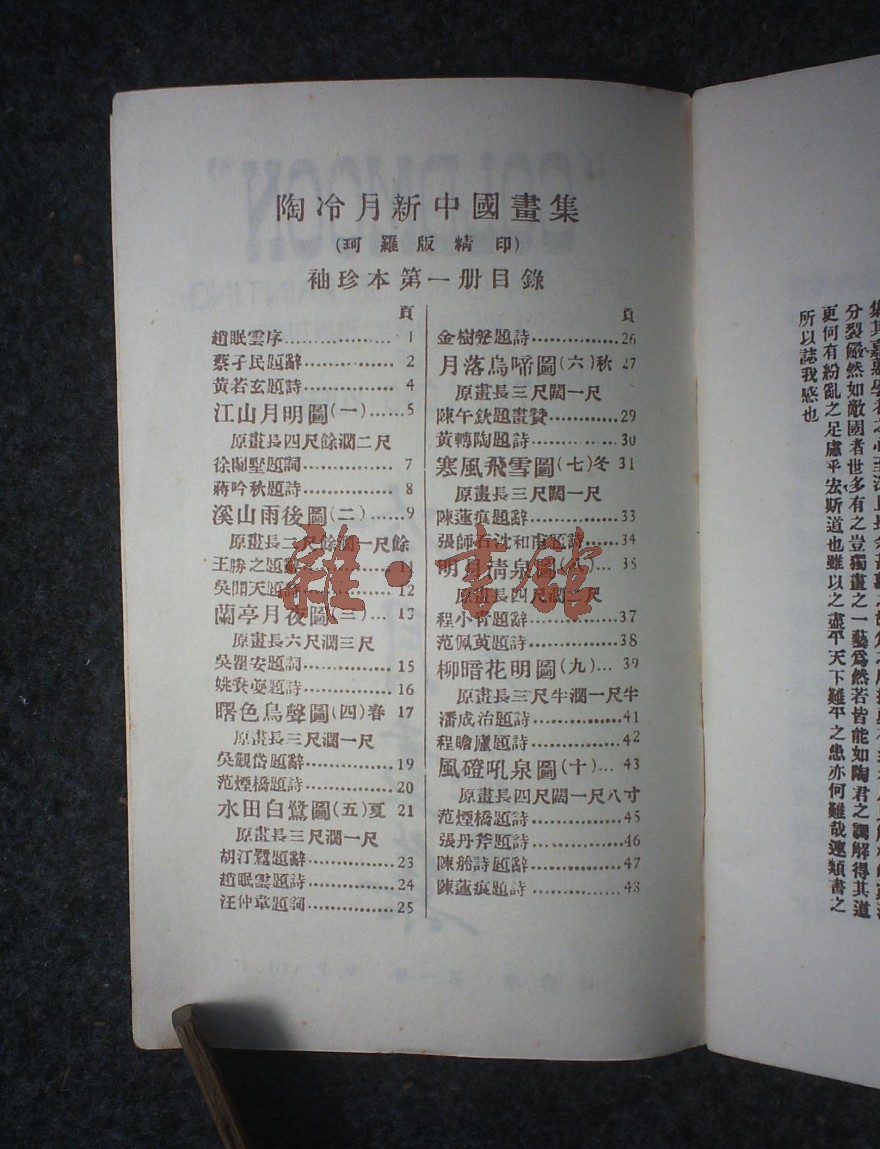 陶冷月新中國畫集
(珂羅版精印)
袖珍本第一册目錄
頁
趙眠雲序………………1
蔡孑民題辭…………2
黃若玄題詩…………4
江山月明圖(一)……5
原畫長四尺餘濶二尺
題詞…………7
蔣吟秋題詩…………8
溪山雨後圖(二)……9
原畫長三尺餘濶一尺餘
王勝之題辭
吳聞天題詩…………12
蘭亭月夜圖(三)…13
原畫長六尺濶三尺
吳瞿安題詞…………15
姚賡夔題詩…………16
曙色鳥聲圖(四)春 17
原畫長三尺濶一尺
吳觀岱題辭…………19
范煙橋題詩…………20
水田白鷺圖(五)夏 21
原畫長三尺濶一尺
胡汀鷺題辭…………23
趙眠雲題詩…………24
汪仲韋題詞…………25
頁
金樹聲題詩…………26
月落烏啼圖(六)秋 27
原畫長三尺闊一尺
陳午欽題畫贊………29
黃轉陶題詩…………30
寒風飛雪圖(七)冬 31
原畫長三尺闊一尺
陳蓮痕題辭…………33
張師石沈和甫題詩……34
明月清泉圖(八)…35
原畫長四尺濶二尺
程小青題辭…………37
范佩萸題詩…………38
柳暗花明圖(九)…39
原畫長三尺半濶一尺半
潘成治題詩…………41
程瞻廬題詩…………42
風磴吼泉圖(十)…43
原畫長四尺闊一尺八寸
范煙橋題詩…………45
張丹斧題詩…………46
陳船詩題辭…………47
陳蓮痕題詩…………48
分裂儼然如敵國者世多有之豈獨畫之一藝爲然若皆能如陶君之調解得其道
更何有紛亂之足慮乎宏斯道也雖以之盡平天下難平之患亦何難哉連類書之
所以誌我感也
雜·書館